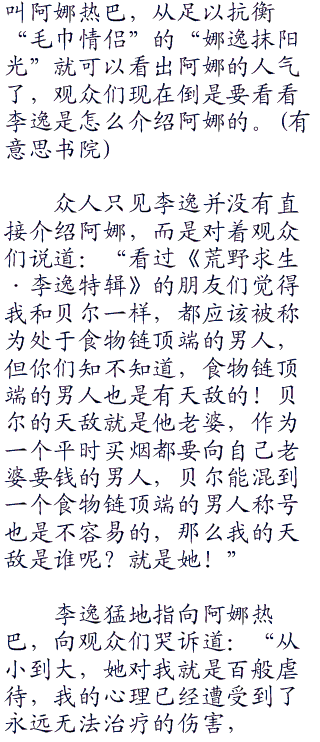 叫阿娜热巴，从足以抗衡
“毛巾情侣”的“娜逸抹阳
光”就可以看出阿娜的人气
了，观众们现在倒是要看看
李逸是怎么介绍阿娜的。(有
意思书院)
众人只见李逸并没有直
接介绍阿娜，而是对着观众
们说道：“看过《荒野求生
·李逸特辑》的朋友们觉得
我和贝尔一样，都应该被称
为处于食物链顶端的男人，
但你们知不知道，食物链顶
端的男人也是有天敌的！贝
尔的天敌就是他老婆，作为
一个平时买烟都要向自己老
婆要钱的男人，贝尔能混到
一个食物链顶端的男人称号
也是不容易的，那么我的天
敌是谁呢？就是她！”
李逸猛地指向阿娜热
巴，向观众们哭诉道：“从
小到大，她对我就是百般虐
待，我的心理已经遭受到了
永远无法治疗的伤害，